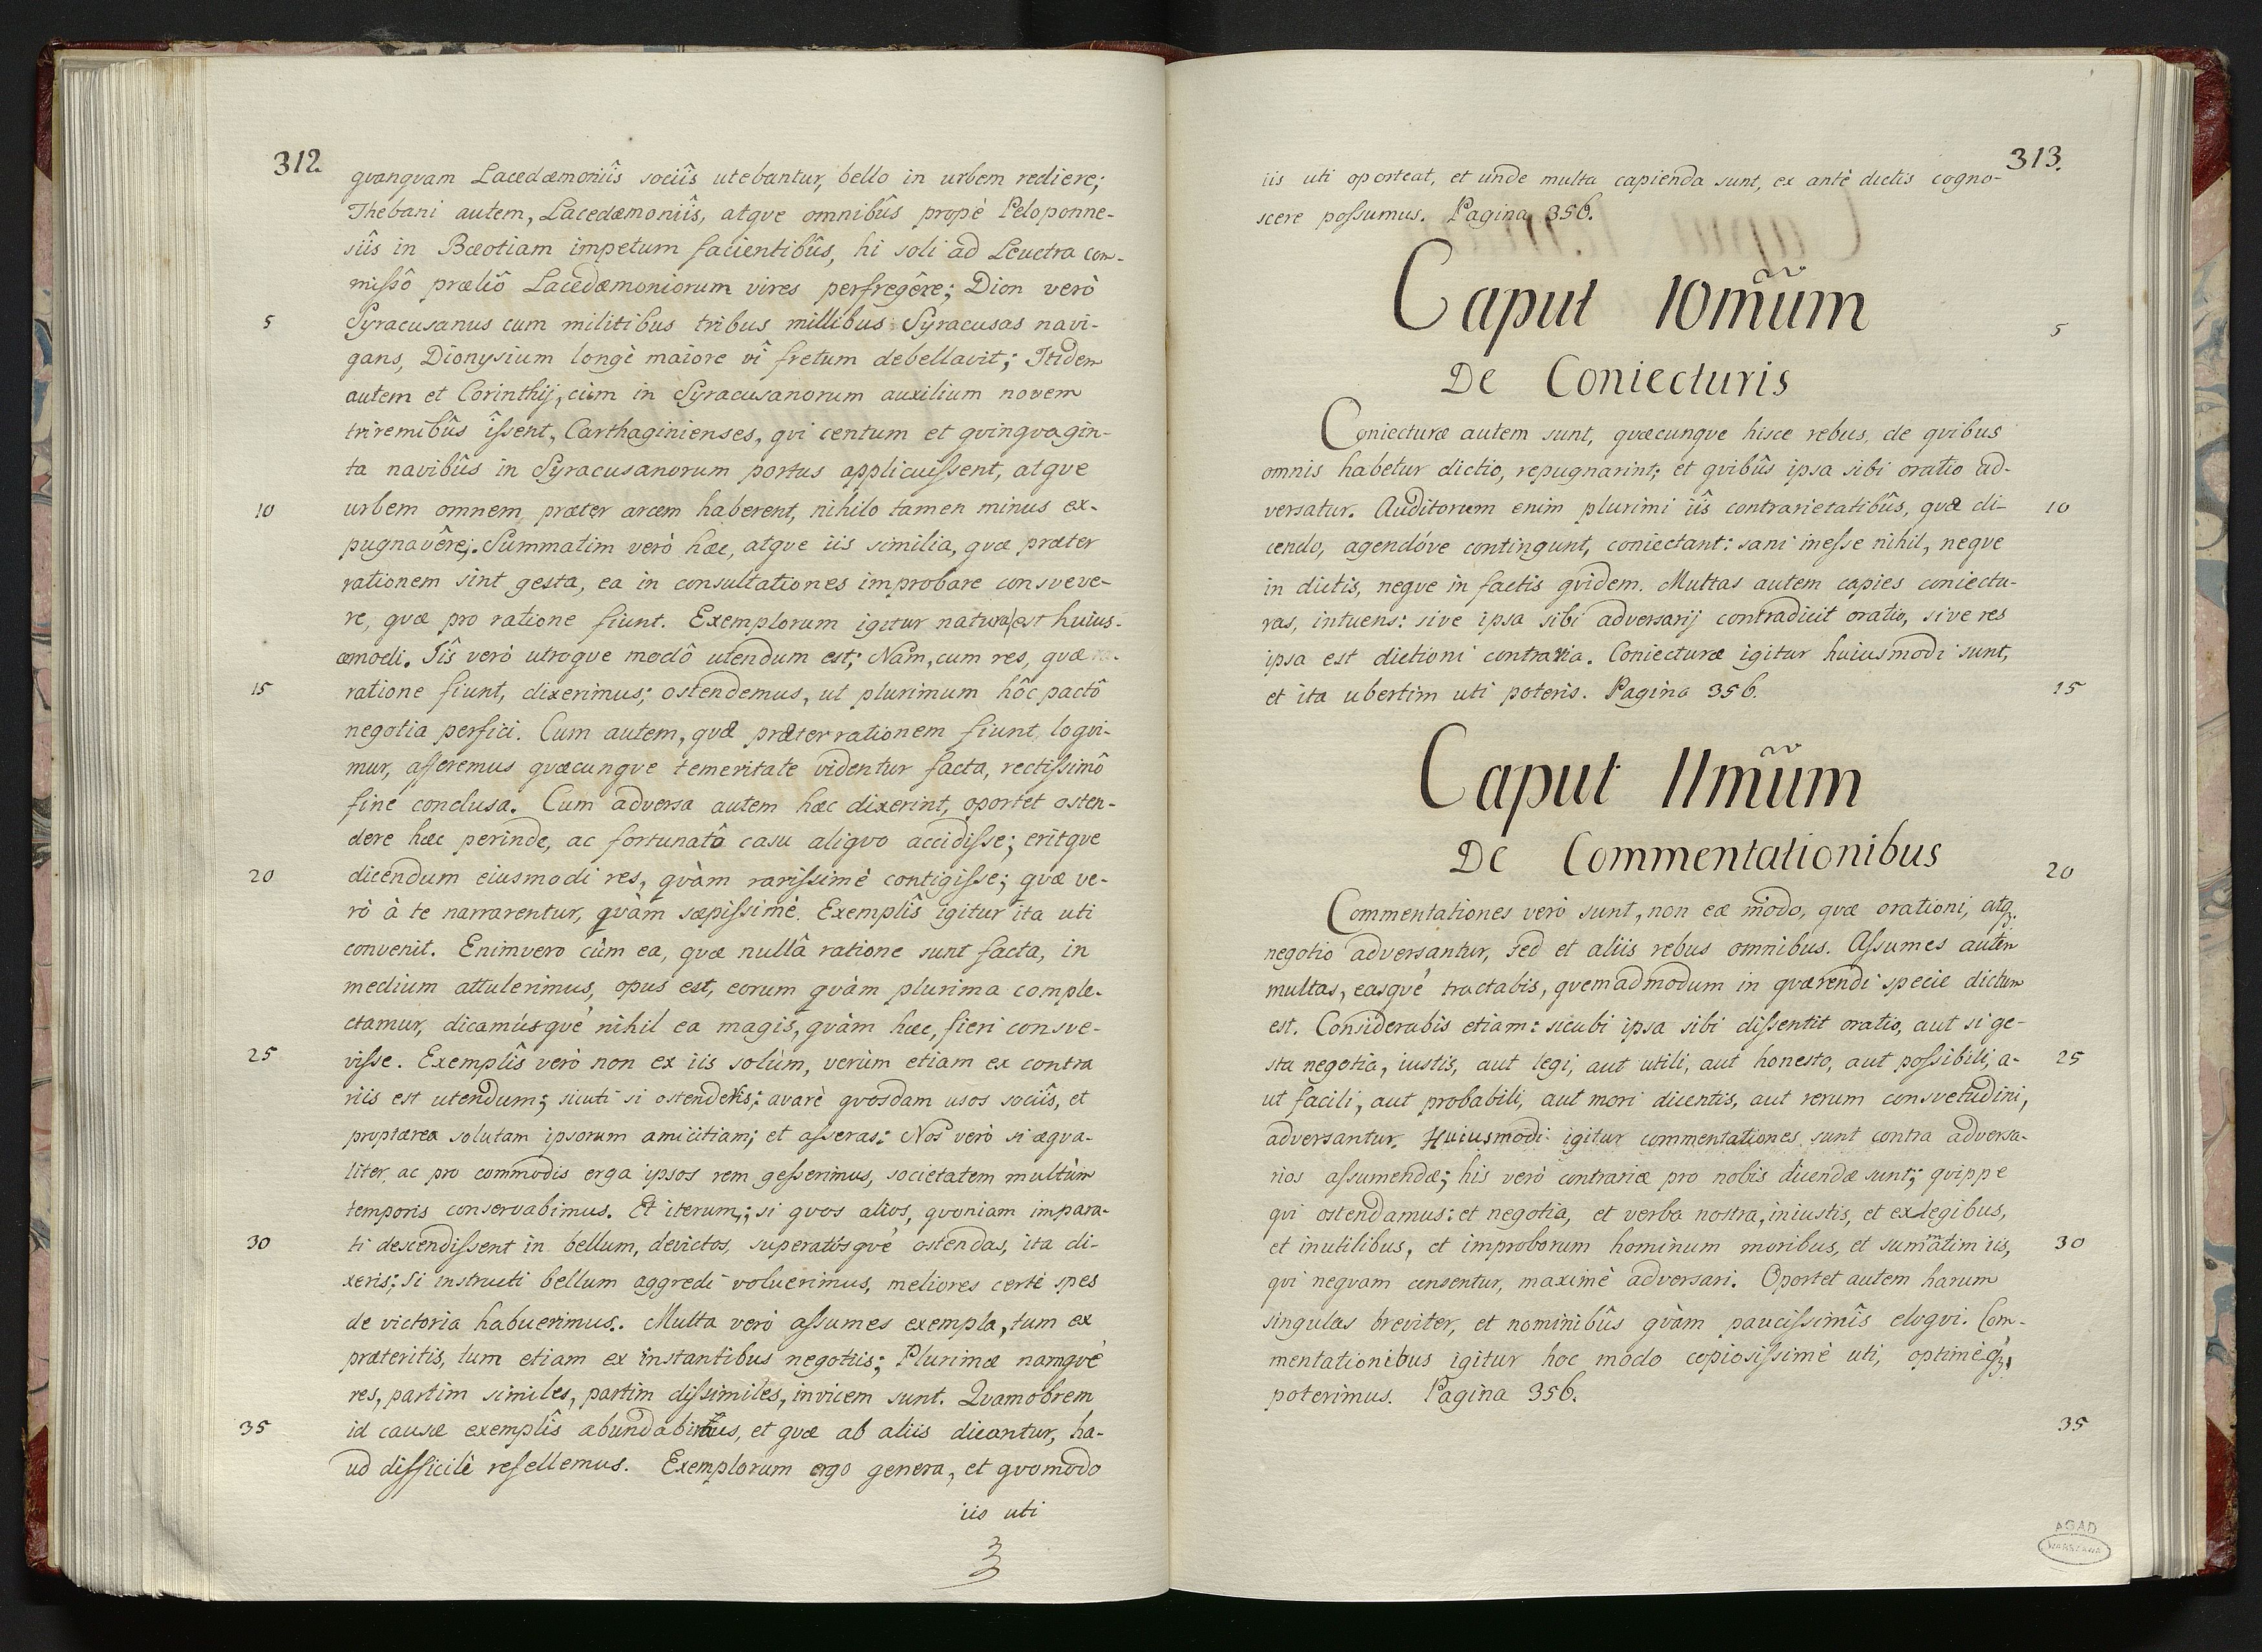 312.
qvanqvam Lacedæmoniîs sociîs utebantur, bello in urbem rediere;
Thebani autem, Lacedæmoniîs, atqve omnibûs propè Peloponne-
siîs in Bæotiam impetum facientibûs, hi soli ad Leuctra com-
missô præliô Lacedæmoniorum vires perfregêre; Dion verò
5 Syracusanus cum militibus tribus millibus Syracusas navi-
gans, Dionysium longè maiore vî fretum debellavit; Itidem
autem et Corinthij, cùm in Syracusanorum auxilium novem
triremibûs îssent, Carthaginienses, qvi centum et qvinqvagin-
ta navibûs in Syracusanorum portus applicuissent, atqve
10 urbem omnem præter arcem haberent, nihilo tamen minus ex-
pugnavêre;. Summatim verò hæc, atqve iis similia, qvæ præter
rationem sint gesta, ea in consultationes improbare consveve-
re, qvæ pro ratione fiunt. Exemplorum igitur natura est huius-
cemodi. Iîs verò utroqve modô utendum est; Nam, cum res, qvæ
15 ratione fiunt, dixerimus; ostendemus, ut plurimum hôc pactô
negotia perfici. Cum autem, qvæ præter rationem fiunt, loqvi-
mur, asseremus qvæcunqve temeritate videntur facta, rectissimô
fine conclusa. Cum adversa autem hæc dixerint, oportet osten-
dere hæc perinde, ac fortunatô casu aliqvo accidisse; eritqve
20 dicendum eiusmodi res, qvàm rarissimè contigisse; qvæ ve-
rò à te narrarentur, qvàm sæpissimè. Exemplîs igitur ita uti
convenit. Enimvero cùm ea, qvæ nullâ ratione sunt facta, in
medium attulerimus, opus est, eorum qvàm plurima comple-
ctamur, dicamúsqvè nihil ea magis, qvàm hæc, fieri consve-
25 visse. Exemplîs verò non ex iis solùm, verùm etiam ex contra
riis est utendum; sicuti si ostenderis; avarè qvosdam usos sociîs, et
proptærea solutam ipsorum amicitiam; et asseras: Nos verò si æqva-
liter, ac pro commodis erga ipsos rem gesserimus, societatem multùm
temporis conservabimus. Et iterum;; si qvos alios, qvoniam impara-
30 ti descendissent in bellum, devictos, superatôsqvè ostendas, ita di-
xeris: Si instructi bellum aggredi voluerimus, meliores certè spes
de victoria habuerimus. Multa verò assumes exempla, tum ex
præteritis, tum etiam ex instantibus negotiis; Plurimæ namqvè
res, partim similes, partim dissimiles, invicem sunt. Qvamobrem
35 id causæ exemplîs abundabimus, et qvæ ab aliis dicantur, ha-
ud difficilè refellemus. Exemplorum ergo genera, et qvomodo
iis uti
313.
iis uti oporteat, et unde multa capienda sunt, ex antè dictis cogno-
scere possumus. Pagina 356.
Caput 10mũm
5
De Coniecturis
Coniecturæ autem sunt, qvæcunqve hisce rebus, de qvibus
omnis habetur dictio, repugnarint; et qvibûs ipsa sibi oratio ad-
versatur. Auditorum enim plurimi iîs contrarietatibûs, qvæ di- 10
cendo, agendóve contingunt, coniectant: sani inesse nihil, neqve
in dictis, neqve in factis qvidem. Multas autem capies coniectu-
ras, intuens: sive ipsa sibi adversarij contradicit oratio, sive res
ipsa est dictioni contraria. Coniecturæ igitur huiusmodi sunt,
et ita ubertim uti poteris. Pagina 356. 15
Caput 11mũm
De Commentationibus 20
Commentationes verò sunt, non eæ modo, qvæ orationi, atq.
negotio adversantur, sed et aliis rebus omnibus. Assumes autem
multas, easqvè tractabis, qvemadmodum in qværendi specie dictum
est. Considerabis etiam: sicubi ipsa sibi dissentit oratio, aut si ge-
sta negotia, iustis, aut legi, aut utili, aut honesto, aut possibili, a- 25
ut facili, aut probabili, aut mori dicentis, aut rerum consvetudini,
adversantur. Huiusmodi igitur commentationes sunt contra adversa-
rios assumendæ; his verò contrariæ pro nobis dicendæ sunt; qvippe
qvi ostendamus: et negotia, et verba nostra, iniustis, et exlegibus,
et inutilibus, et improborum hominum moribus, et summatim iis, 30
qvi neqvam censentur, maximè adversari. Oportet autem harum
singulas breviter, et nominibûs qvàm paucissimîs eloqvi. Com-
mentationibus igitur hoc modo copiosissimè uti, optimèq;
poterimus. Pagina 356.
35
AGAD
WARSZAWA